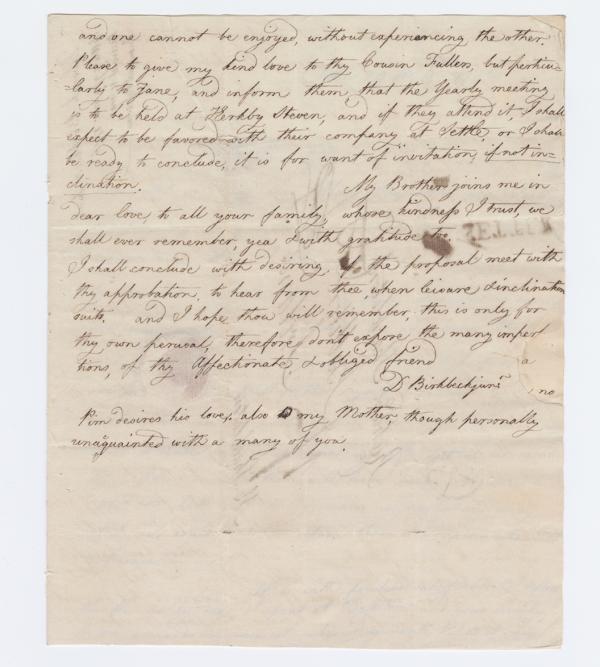 and one cannot be enjoyed, without experiencing the other.
Please to give my kind love to thy Cousin Fullers, but perticu-
larly to Jane, and inform them that the Yearly meeting
is to be held at Kerkby Steven, and if they attend it, I shall
expect to be favored with their company at Settle, or I shall
be ready to conclude, it is for want of invitation, if not in=
clination. My Brother joins me in
Dear love, to all your family, whose kindness I trust, we
shall ever remember, yea & with gratitude too.
I shall conclude with desiring, if the proposal meet with
thy approbation, to hear from thee, when leisure & inclination
suits. and I hope thou will remember this is only for
thy own perusal, therefore don't expose the many imperfec
tions, of thy Affectionate & obliged friend a
D Birkbeck junr
no
Pim desires his love, also my Mother, though personally
unaquainted with a many of you.